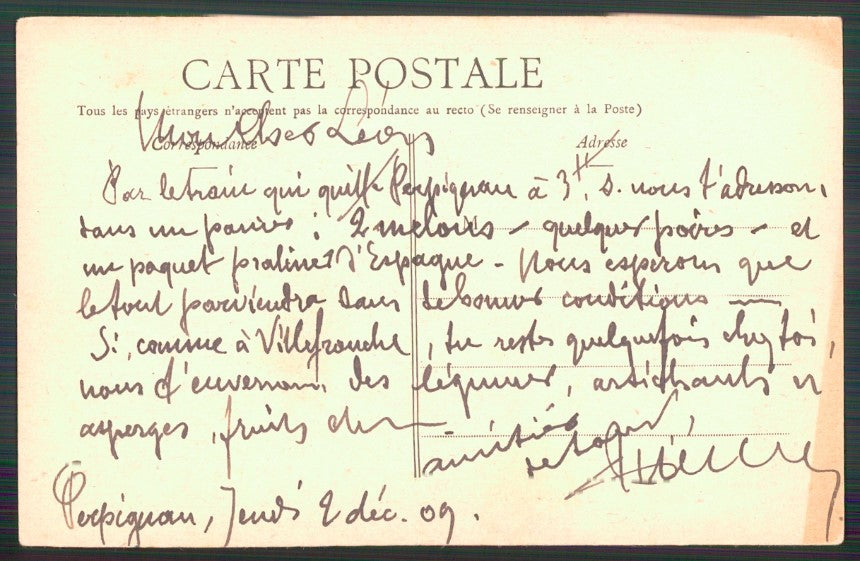 CARTE POSTALE
Tous les pays étrangers n'acceptent pas la correspondance au recto (Se renseigner à la Poste)
Correspondance
Adresse
Mon cher Léon
Par le train qui quitte Perpignan à 3h. s. nous t'adressons,
dans un panier : 2 melons - quelques poires - et
un paquet pralines d'Espagne - Nous esperons que
le tout parviendra dans de bonnes conditions —
Si, comme à Villefranche, tu restes quelquefois chez toi,
nous t'enverrons des légumes, artichauts et
asperges, fruits
amitiés
de tous,
Perpignan, Jeudi 2 déc. 09.